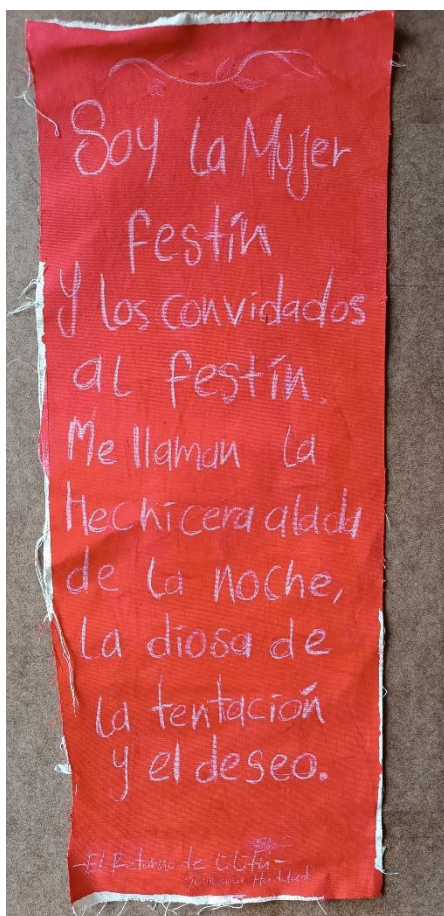 Soy La Mujer
festín
Y Los convidados
al festín.
Me llaman La
Hechicera alada
de La noche,
La diosa de
La tentación
y el deseo.
-El Retorno de Lilith-
Haddad